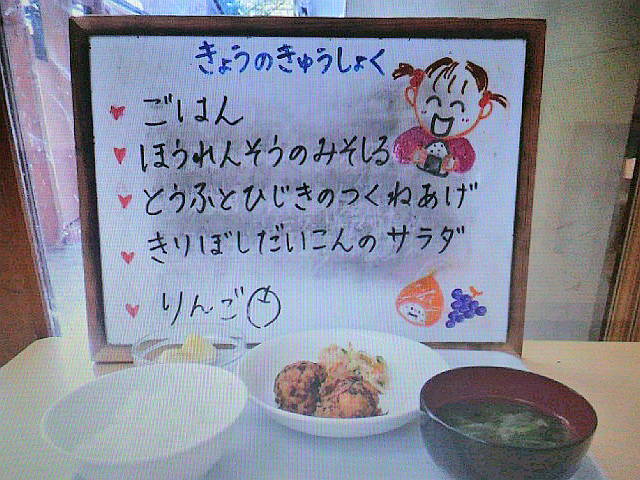 きょうのきゅうしょく
ごはん
ほうれんそうのみそしる
とうふとひじきのつくねあげ
きりぼしだいこんのサラダ
りんご